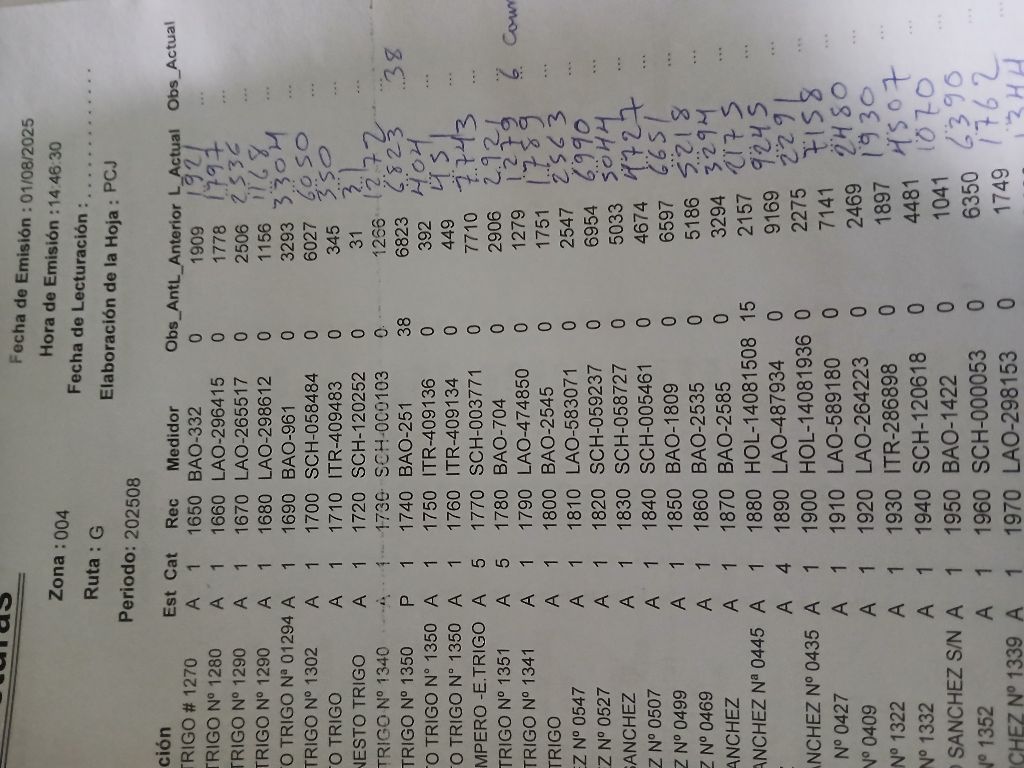 Fecha de Emisión : 01/08/2025
Zona : 004 Hora de Emisión :14:46:30
Ruta : G Fecha de Lecturación : ..........
Periodo: 202508 Elaboración de la Hoja : PCJ
ción Est Cat Rec Medidor Obs_AntL_Anterior L_Actual Obs_Actual
TRIGO # 1270 A 1 1650 BAO-332 0 1909 1921 ...
TRIGO Nº 1280 A 1 1660 LAO-296415 0 1778 1797 ...
TRIGO Nº 1290 A 1 1670 LAO-265517 0 2506 2536 ...
TRIGO Nº 1290 A 1 1680 LAO-298612 0 1156 1168 ...
O TRIGO Nº 01294 A 1 1690 BAO-961 0 3293 3304 ...
TRIGO Nº 1302 A 1 1700 SCH-058484 0 6027 6050 ...
O TRIGO A 1 1710 ITR-409483 0 345 350 ...
NESTO TRIGO A 1 1720 SCH-120252 0 31 31 ...
TRIGO Nº 1340 A 1 1730 SCH-000103 0 1266 1272 ...
TRIGO Nº 1350 P 1 1740 BAO-251 38 6823 6823 38
O TRIGO N° 1350 A 1 1750 ITR-409136 0 392 404 ...
O TRIGO N° 1350 A 1 1760 ITR-409134 0 449 451 ...
MPERO -E.TRIGO A 5 1770 SCH-003771 0 7710 7743 ...
TRIGO Nº 1351 A 5 1780 BAO-704 0 2906 2921 ...
TRIGO Nº 1341 A 1 1790 LAO-474850 0 1279 1279 6
TRIGO A 1 1800 BAO-2545 0 1751 1789 ...
EZ Nº 0547 A 1 1810 LAO-583071 0 2547 2563 ...
EZ Nº 0527 A 1 1820 SCH-059237 0 6954 6990 ...
SANCHEZ A 1 1830 SCH-058727 0 5033 5044 ...
Z Nº 0507 A 1 1840 SCH-005461 0 4674 4727 ...
Z Nº 0499 A 1 1850 BAO-1809 0 6597 6651 ...
Z Nº 0469 A 1 1860 BAO-2535 0 5186 5218 ...
ANCHEZ A 1 1870 BAO-2585 0 3294 3294 ...
ANCHEZ Nª 0445 A 1 1880 HOL-14081508 15 2157 2175 ...
A 4 1890 LAO-487934 0 9169 9245 ...
ANCHEZ Nº 0435 A 1 1900 HOL-14081936 0 2275 2291 ...
Nº 0427 A 1 1910 LAO-589180 0 7141 7158 ...
Nº 0409 A 1 1920 LAO-264223 0 2469 2480 ...
Nº 1322 A 1 1930 ITR-286898 0 1897 1930 ...
Nº 1332 A 1 1940 SCH-120618 0 4481 4507 ...
O SANCHEZ S/N A 1 1950 BAO-1422 0 1041 1070 ...
Nº 1352 A 1 1960 SCH-000053 0 6350 6390 ...
CHEZ Nº 1339 A 1 1970 LAO-298153 0 1749 1762 ...
1344